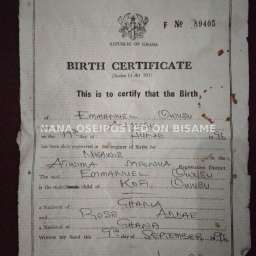 F No 89405
REPUBLIC OF GHANA
BIRTH CERTIFICATE
(Section 11 Act 301)
This is to certify that the Birth
of EMMANUEL OWUSU
NANA OSEIPOSTED ON BISAME
has been duly registered in the register of Births for
NKAWIE
ATWIMA Registration District
EMMANUEL OWUSU
is the child of KOFI OWUSU
a National of GHANA
and ROSE
a National of GHANA
Witness my hand this 9TH day of SEPTEMBER